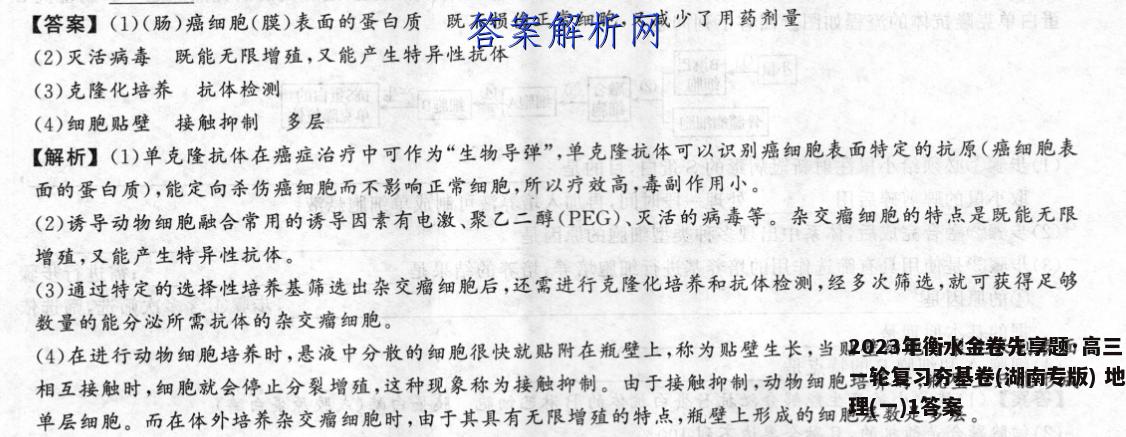 【答案】(1)(肠)癌细胞(膜)表面的蛋白质 既不损伤正常细胞,又减少了用药剂量
答案解析网
(2)灭活病毒 既能无限增殖,又能产生特异性抗体
(3)克隆化培养 抗体检测
(4)细胞贴壁 接触抑制 多层
【解析】(1)单克隆抗体在癌症治疗中可作为“生物导弹”,单克隆抗体可以识别癌细胞表面特定的抗原(癌细胞表
面的蛋白质),能定向杀伤癌细胞而不影响正常细胞,所以疗效高,毒副作用小。
(2)诱导动物细胞融合常用的诱导因素有电激、聚乙二醇(PEG)、灭活的病毒等。杂交瘤细胞的特点是既能无限
增殖,又能产生特异性抗体。
(3)通过特定的选择性培养基筛选出杂交瘤细胞后,还需进行克隆化培养和抗体检测,经多次筛选,就可获得足够
数量的能分泌所需抗体的杂交瘤细胞。
(4)在进行动物细胞培养时,悬液中分散的细胞很快就贴附在瓶壁上,称为贴壁生长,当贴
相互接触时,细胞就会停止分裂增殖,这种现象称为接触抑制。由于接触抑制,动物细胞培养
单层细胞。而在体外培养杂交瘤细胞时,由于其具有无限增殖的特点,瓶壁上形成的细胞层数是多层。
2023年衡水金卷先享题·高三
一轮复习夯基卷(湖南专版) 地
理(一)1答案